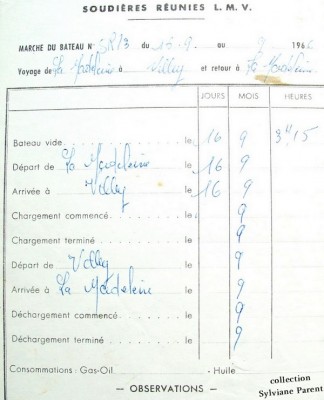 SOUDIÈRES RÉUNIES L. M. V.
MARCHE DU BATEAU N° SR13 du 16-9. au 9 - 196
Voyage de La Madeleine à Villey et retour à La Madeleine
JOURS MOIS HEURES
Bateau vide le 16 9 3H15
Départ de La Madeleine le 16 9
Arrivée à Villey le 16 9
Chargement commencé le 9
Chargement terminé le 9
Départ de Villey le 9
Arrivée à La Madeleine le 9
Déchargement commencé le 9
Déchargement terminé le 9
Consommations : Gas-Oil - Huile
— OBSERVATIONS —
collection
Sylviane Parent